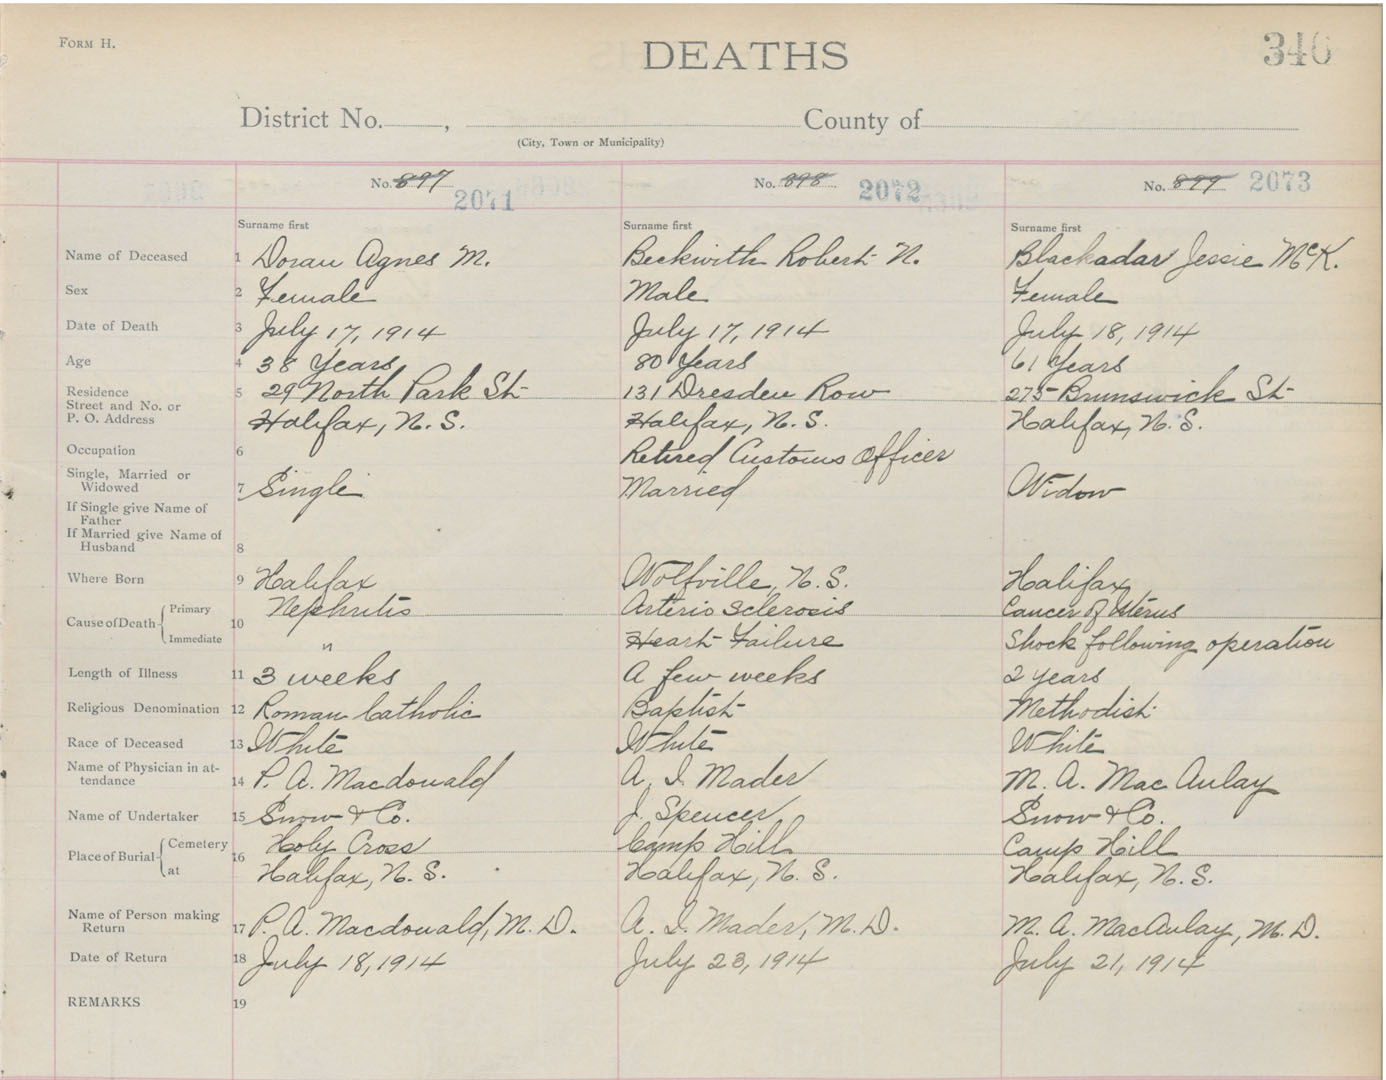 FORM H.
DEATHS
346
District No. , County of
(City, Town or Municipality)
No. 897 2071 No. 898 2072 No. 899 2073
Surname first Surname first Surname first
Name of Deceased 1 Doran Agnes M. Beckwith Robert N. Blackadar Jessie McK.
Sex 2 Female Male Female
Date of Death 3 July 17, 1914 July 17, 1914 July 18, 1914
Age 4 38 Years 80 Years 61 Years
Residence 5 29 North Park St 131 Dresden Row 275 Brunswick St
Street and No. or
P. O. Address Halifax, N.S. Halifax, N.S. Halifax, N.S.
Occupation 6 Retired Customs Officer
Single, Married or
Widowed 7 Single Married Widow
If Single give Name of
Father
If Married give Name of
Husband 8
Where Born 9 Halifax Wolfville, N.S. Halifax
Cause of Death 10 Primary Nephritis Arterio Sclerosis Cancer of Uterus
Immediate " Heart Failure Shock following operation
Length of Illness 11 3 weeks A few weeks 2 years
Religious Denomination 12 Roman Catholic Baptist Methodist
Race of Deceased 13 White White White
Name of Physician in at-
tendance 14 P. A. Macdonald A. I. Mader M. A. MacAulay
Name of Undertaker 15 Snow & Co. J. Spencer Snow & Co.
Place of Burial 16 Cemetery Holy Cross Camp Hill Camp Hill
at Halifax, N.S. Halifax, N.S. Halifax, N.S.
Name of Person making
Return 17 P. A. Macdonald, M.D. A. I. Mader, M.D. M. A. MacAulay, M.D.
Date of Return 18 July 18, 1914 July 23, 1914 July 21, 1914
REMARKS 19